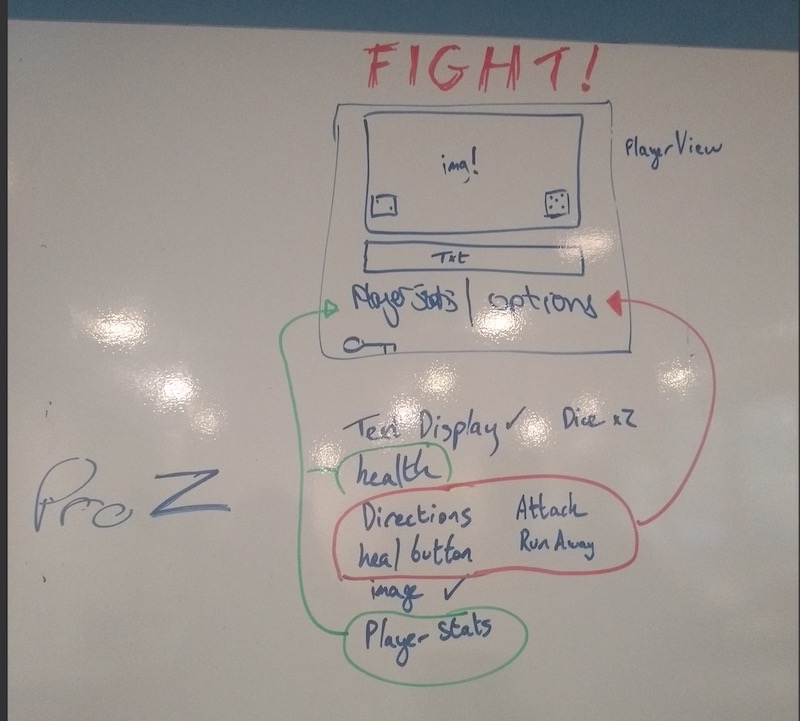 FIGHT!
PlayerView
img!
Txt
Player stats | options
Text Display ✓ Dice x2
health
Directions Attack
heal button Run Away
image ✓
Player stats
Pro Z